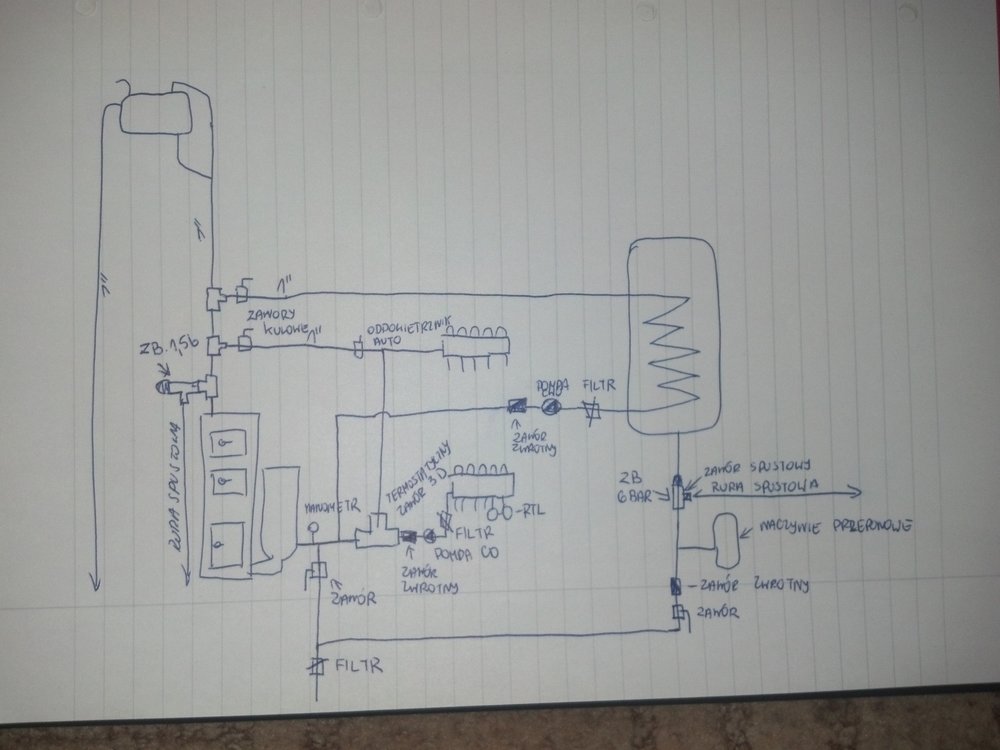 1"
1"
1"
ZAWORY
KULOWE
1"
ODPOWIETRZNIK
AUTO
ZB 1,5b
RURA SPUSTOWA
POMPA
CWU
FILTR
ZAWÓR
ZWROTNY
TERMOSTATYCZNY
ZAWÓR 3D
MANOMETR
RTL
FILTR
POMPA CO
ZAWÓR
ZWROTNY
ZAWÓR
ZB
6 BAR
ZAWÓR SPUSTOWY
RURA SPUSTOWA
NACZYNIE PRZEPONOWE
ZAWÓR ZWROTNY
ZAWÓR
FILTR